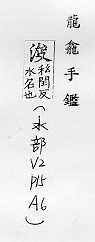 龍龕手鑑
浚私閏反水名也(水部V2P15A6)